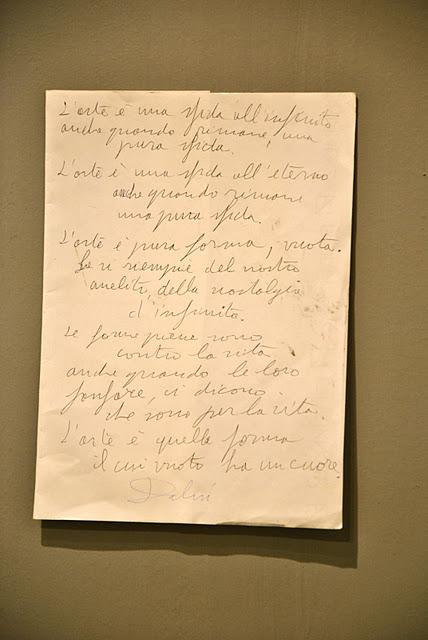 L'arte è una sfida all'infinito
anche quando rimane, una
pura sfida.
L'arte è una sfida all'eterno
anche quando rimane
una pura sfida.
L'arte è pura forma, vuota.
Se si riempie del nostro
anelito, della nostalgia
d'infinito.
Le forme piene sono
contro la vita
anche quando le loro
fanfare, ci dicono
che sono per la vita.
L'arte è quella forma
il cui vuoto ha un cuore.